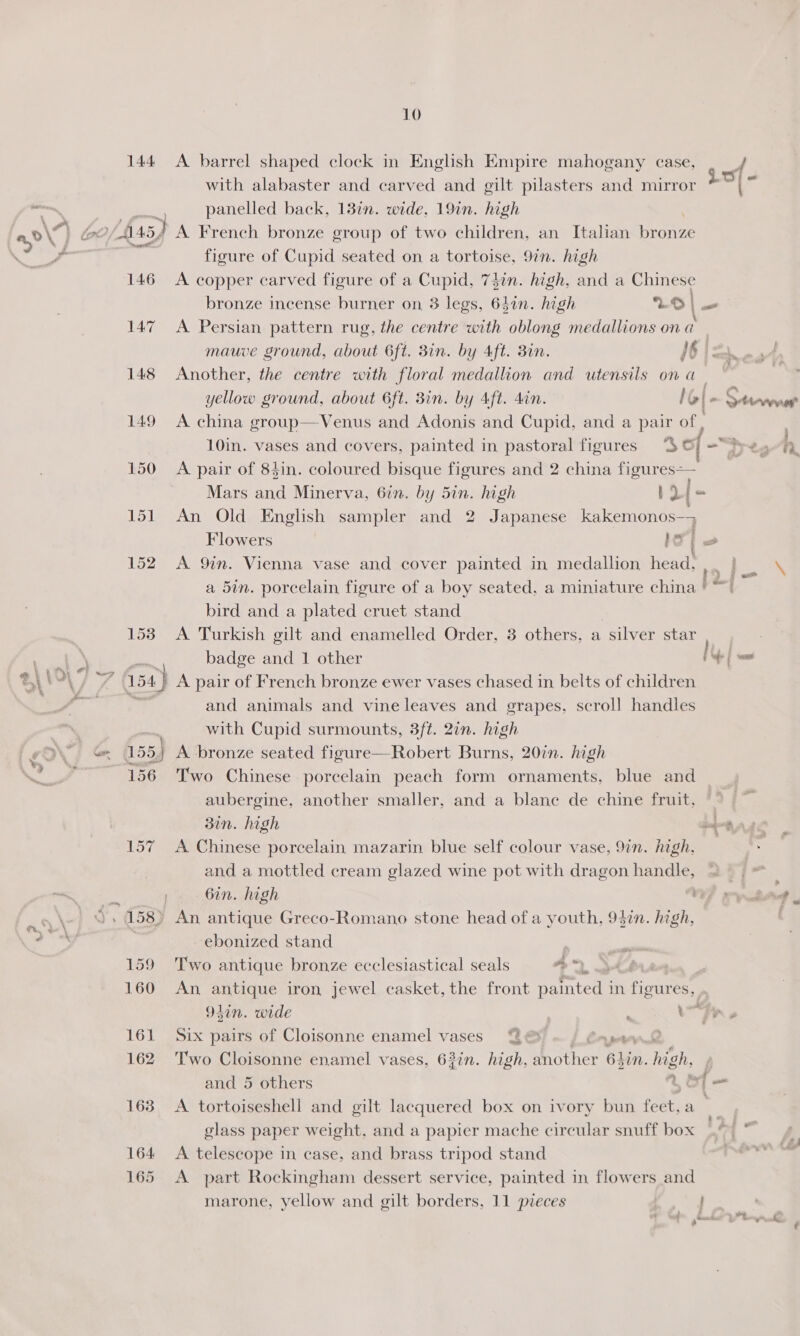 10
144 A barrel shaped clock in English Empire mahogany case,
with alabaster and carved and gilt pilasters and mirror
panelled back, 13in. wide, 19in. high
145 A French bronze group of two children, an Italian bronze
figure of Cupid seated on a tortoise, 9in. high
146 A copper carved figure of a Cupid, 7½in. high, and a Chinese
bronze incense burner on 3 legs, 6½in. high
147 A Persian pattern rug, the centre with oblong medallions on a
mauve ground, about 6ft. 3in. by 4ft. 3in.
148 Another, the centre with floral medallion and utensils on a
yellow ground, about 6ft. 3in. by 4ft. 4in. 16/-
149 A china group—Venus and Adonis and Cupid, and a pair of
10in. vases and covers, painted in pastoral figures
150 A pair of 8½in. coloured bisque figures and 2 china figures—
Mars and Minerva, 6in. by 5in. high
151 An Old English sampler and 2 Japanese kakemonos—
Flowers
152 A 9in. Vienna vase and cover painted in medallion head,
a 5in. porcelain figure of a boy seated, a miniature china
bird and a plated cruet stand
153 A Turkish gilt and enamelled Order, 3 others, a silver star
badge and 1 other
154 A pair of French bronze ewer vases chased in belts of children
and animals and vine leaves and grapes, scroll handles
with Cupid surmounts, 3ft. 2in. high
155 A bronze seated figure—Robert Burns, 20in. high
156 Two Chinese porcelain peach form ornaments, blue and
aubergine, another smaller, and a blanc de chine fruit,
3in. high
157 A Chinese porcelain mazarin blue self colour vase, 9in. high,
and a mottled cream glazed wine pot with dragon handle,
6in. high
158 An antique Greco-Romano stone head of a youth, 9½in. high,
ebonized stand
159 Two antique bronze ecclesiastical seals
160 An antique iron jewel casket, the front painted in figures,
9½in. wide
161 Six pairs of Cloisonne enamel vases
162 Two Cloisonne enamel vases, 6¾in. high, another 6½in. high,
and 5 others
163 A tortoiseshell and gilt lacquered box on ivory bun feet, a
glass paper weight, and a papier mache circular snuff box
164 A telescope in case, and brass tripod stand
165 A part Rockingham dessert service, painted in flowers and
marone, yellow and gilt borders, 11 pieces